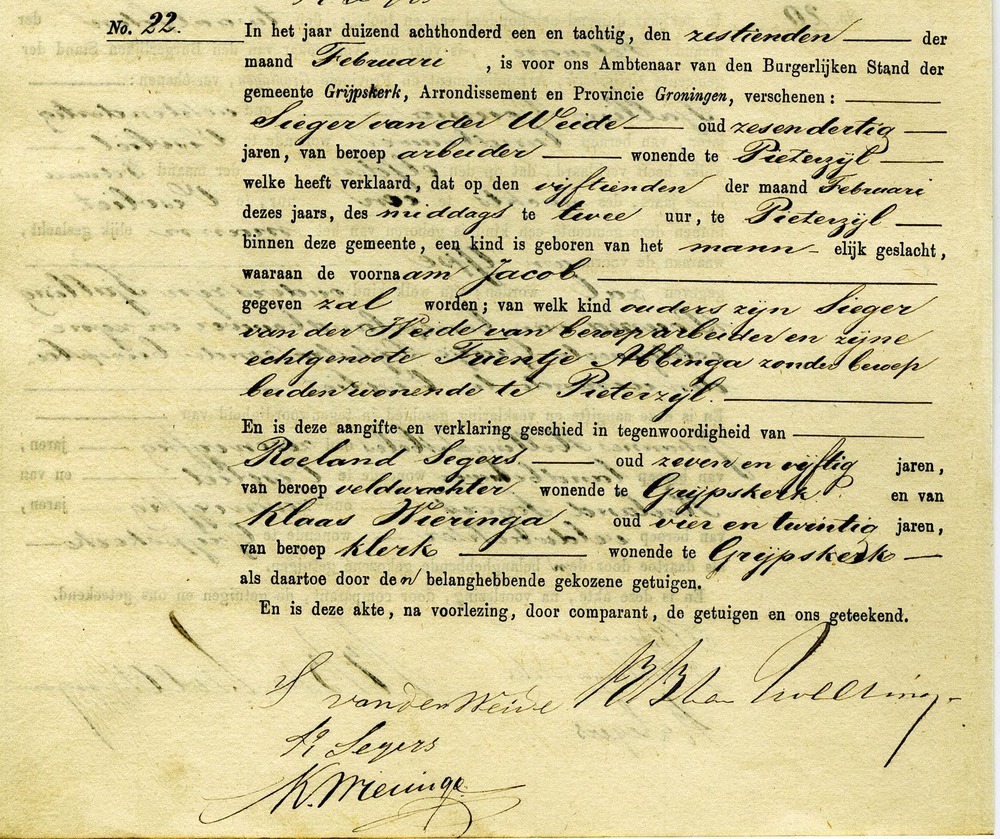 No. 22.
In het jaar duizend achthonderd een en tachtig, den zestienden der
maand Februari, is voor ons Ambtenaar van den Burgerlijken Stand der
gemeente Grijpskerk, Arrondissement en Provincie Groningen, verschenen:
Sieger van der Weide oud zesendertig
jaren, van beroep arbeider wonende te Pieterzijl
welke heeft verklaard, dat op den vijftienden der maand Februari
dezes jaars, des middags te twee uur, te Pieterzijl
binnen deze gemeente, een kind is geboren van het mann- elijk geslacht,
waaraan de voornaam Jacob
gegeven zal worden; van welk kind ouders zijn Sieger
van der Weide van beroep arbeider en zijne
echtgenoote Trientje Abbinga zonder beroep
beiden wonende te Pieterzijl.
En is deze aangifte en verklaring geschied in tegenwoordigheid van
Roeland Segers oud zeven en vijftig jaren,
van beroep veldwachter wonende te Grijpskerk en van
Klaas Wieringa oud vier en twintig jaren,
van beroep klerk wonende te Grijpskerk
als daartoe door den belanghebbende gekozene getuigen.
En is deze akte, na voorlezing, door comparant, de getuigen en ons geteekend.
S van der Weide
R Segers
K. Wieringa